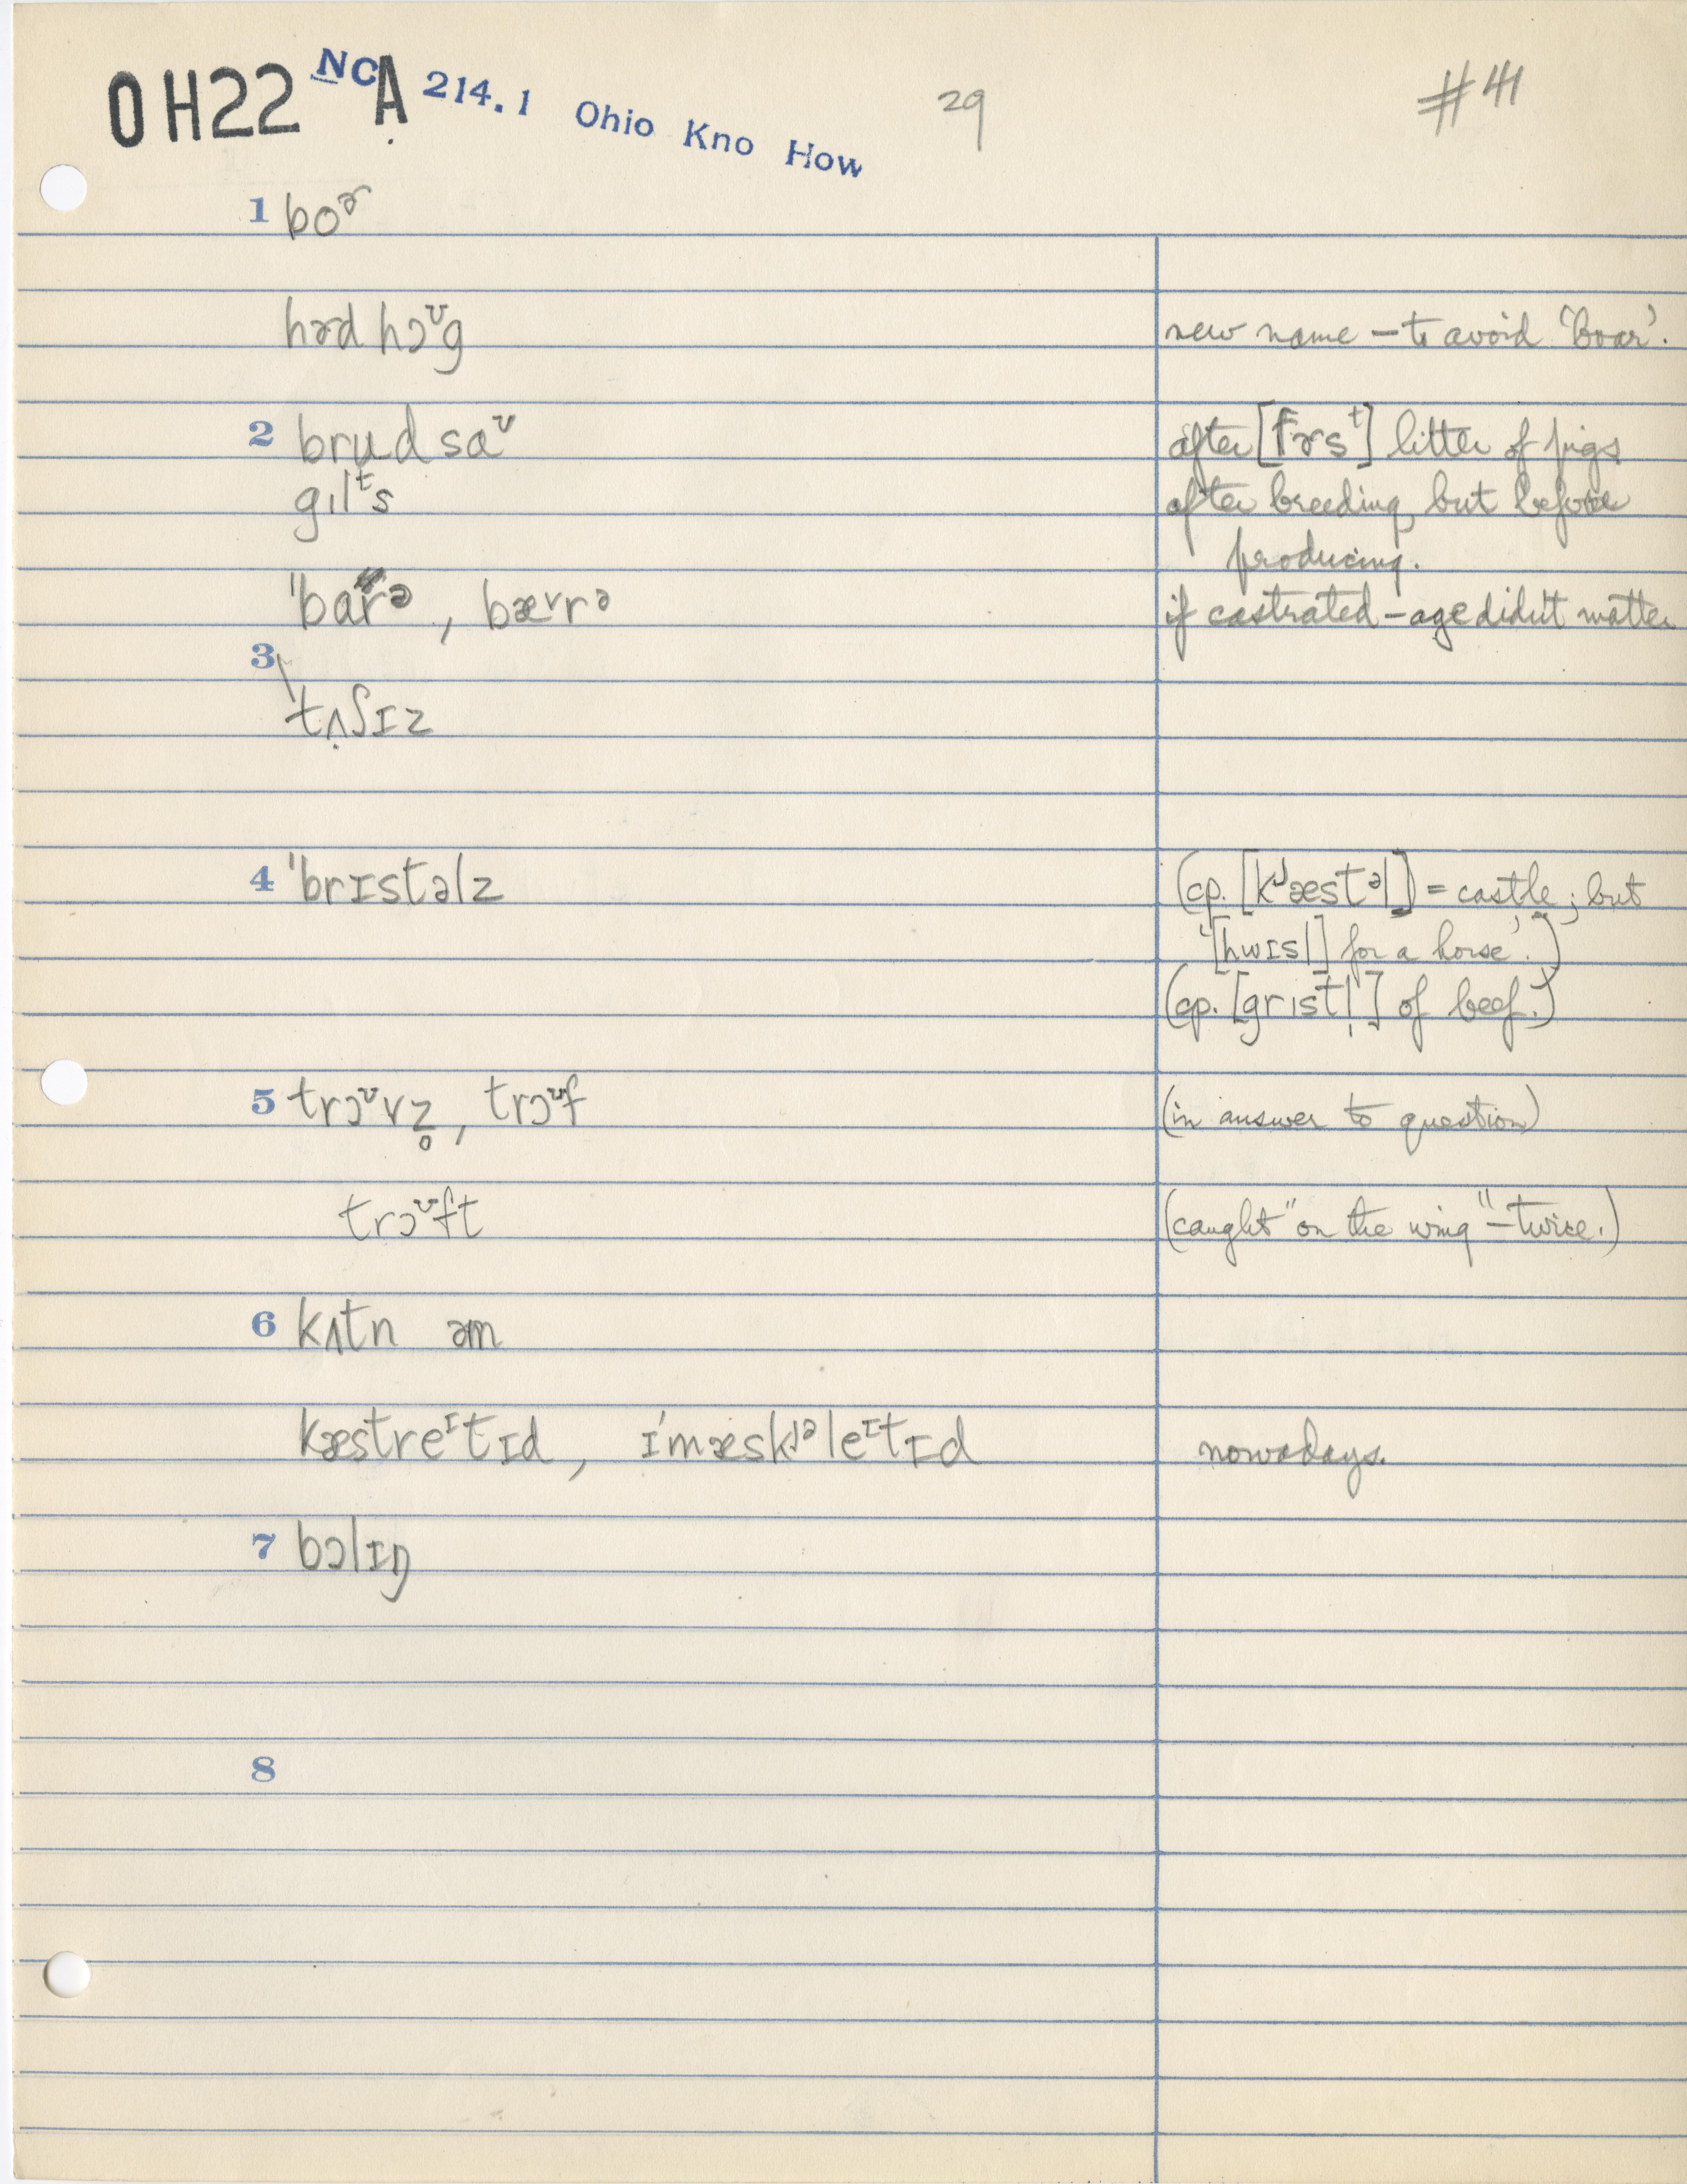 OH22 A NC 214.1 Ohio Kno How 29 #41
1 boᵊʳ
hɚd hɔᶷg new name – to avoid 'boar'.
2 brud saᶷ after [fɚsᵗ] litter of pigs
gɪlᵗs after breeding, but before
producing.
'barə, bæᵛrə if castrated – age didn't matter
3
'tʌ̣ʃɪz
4 'brɪstəlz (cp. [kʲæstəl]) = castle; but
'[hwɪsl] for a horse'.)
(cp. [grɪstl̩] of beef.)
5 trɔᶷvz̥, trɔᶷf (in answer to question)
trɔᶷft (caught "on the wing" – twice.)
6 kʌtn əm
kæstreᶦtɪd, ɪ'mæskʲəleᶦtɪd nowadays.
7 bɔlɪŋ
8